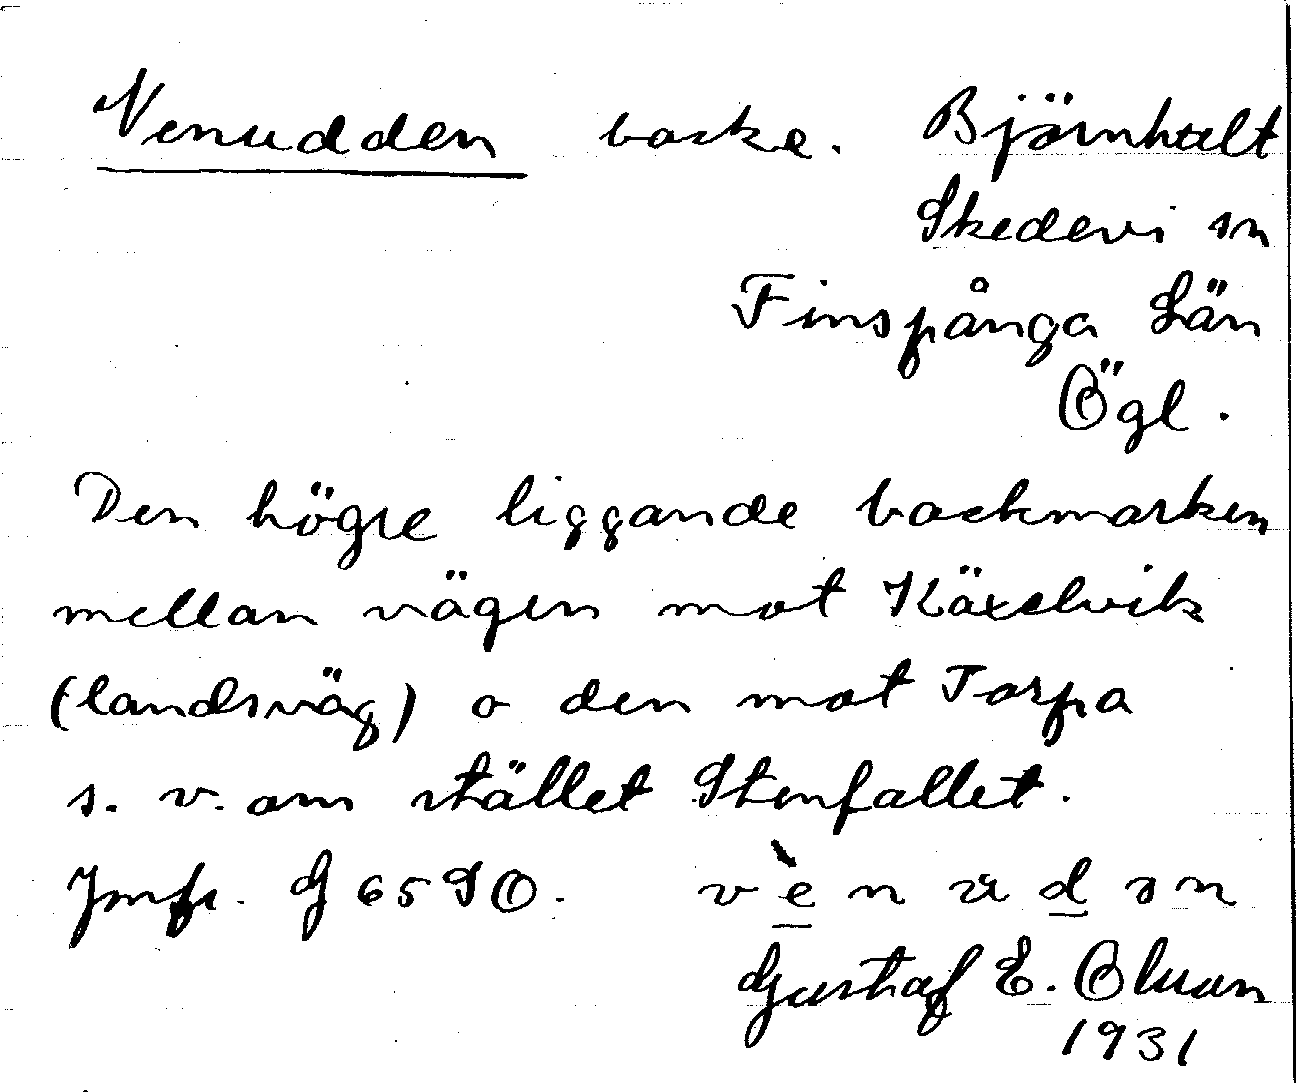 Venudden backe. Björnhult
Skedevi sn
Finspånga Län
Ögl.
Den högre liggande backmarken
mellan vägen mot Käxelvik
(landsväg) o den mot Torpa
s. v. om stället Stenfallet.
Jmfr. G 65 SO. vènudən
Gustaf E.
1931